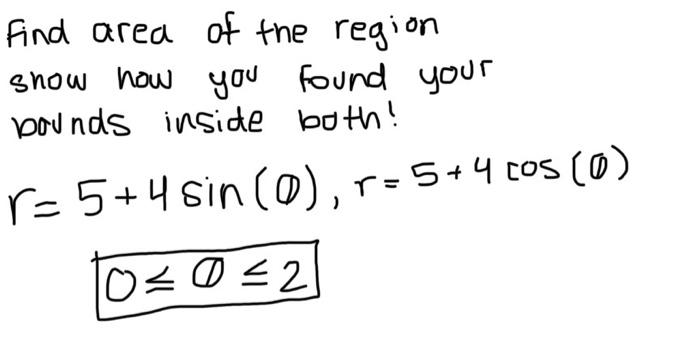 Find area of the region
show how you found your
bounds inside both!
r = 5 + 4 sin(θ), r = 5 + 4 cos(θ)
0 ≤ θ ≤ 2